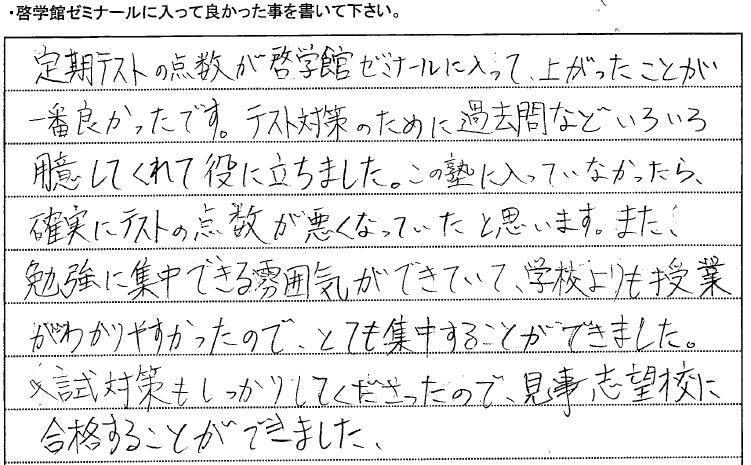 ・啓学館ゼミナールに入って良かった事を書いて下さい。
定期テストの点数が啓学館ゼミナールに入って、上がったことが
一番良かったです。テスト対策のために過去問などいろいろ
用意してくれて役に立ちました。この塾に入っていなかったら、
確実にテストの点数が悪くなっていたと思います。また、
勉強に集中できる雰囲気ができていて、学校よりも授業
がわかりやすかったので、とても集中することができました。
入試対策もしっかりしてくださったので、見事志望校に
合格することができました、